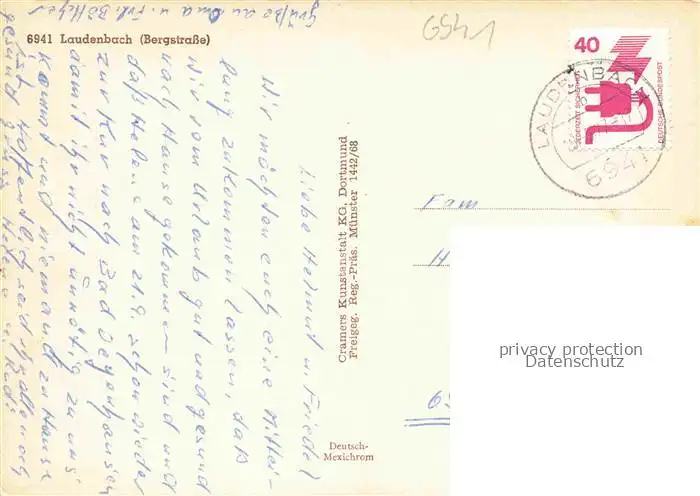 6941 Laudenbach (Bergstraße)
6941
40
JEDERZEIT SICHERHEIT
DEUTSCHE BUNDESPOST
LAUDENBACH
6941
Fam
H
69
privacy protection
Datenschutz
Cramers Kunstanstalt KG, Dortmund
Freigeg. Reg.-Präs. Münster 1442/68
Deutsch-
Mexichrom
Liebe Helmut u. Friedel
Wir möchten euch eine Mittei-
lung zukommen lassen, daß
wir vom Urlaub gut und gesund
nach Hause gekommen sind und
daß Helene am 21.9. schon wieder
zur Kur nach Bad Oeynhausen
damit ihr nicht unnötig zu uns
kommt und niemand zu Hause
ist. Hoffentlich seid ihr alle noch
gesund
Grüße an Oma u.